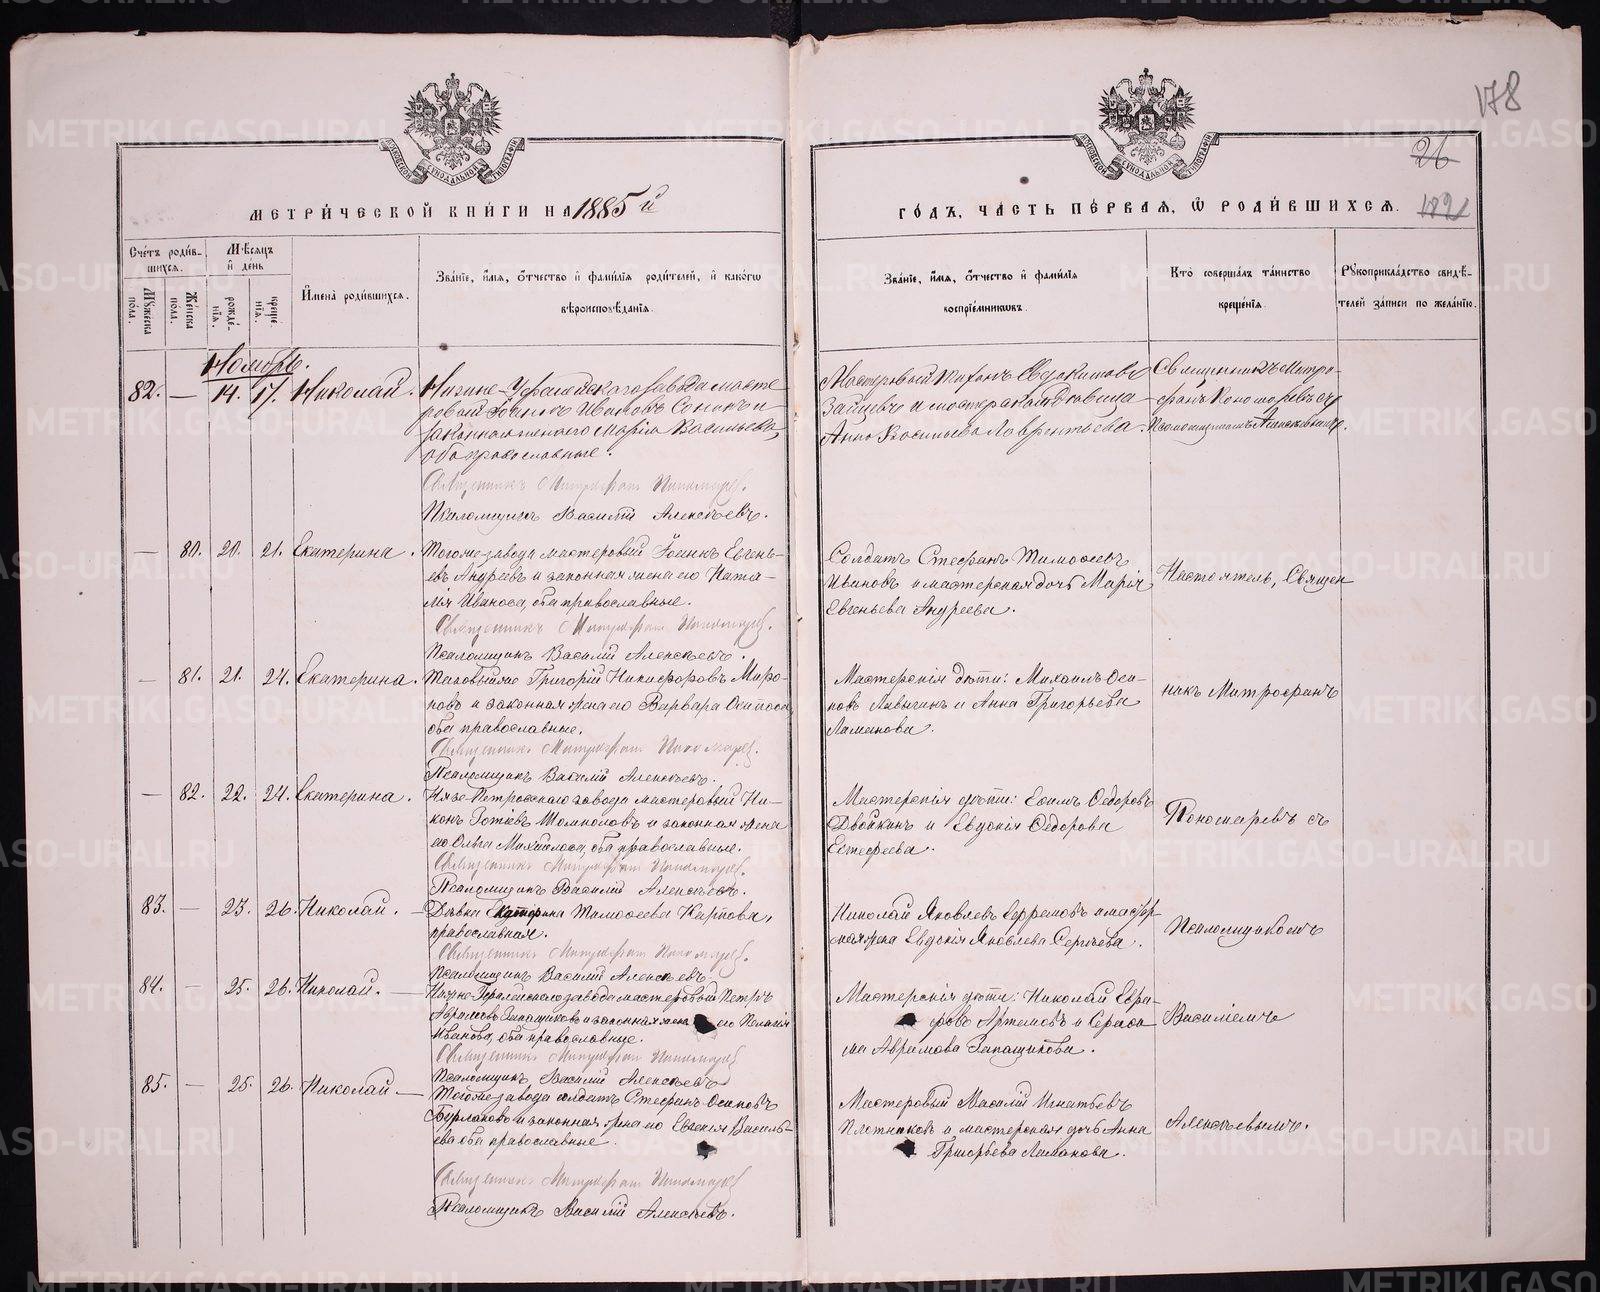 178
26
182
МОСКОВСКОЙ СѴНОДАЛЬНОЙ ТИПОГРАФІИ
МОСКОВСКОЙ СѴНОДАЛЬНОЙ ТИПОГРАФІИ
МЕТРИ́ЧЕСКОЙ КНИ́ГИ НА 1885й
ГО́ДЪ, ЧА́СТЬ ПЕ́РВАЯ, Ѡ РОДИ́ВШИХСЯ.
Сче́тъ роди́в-
шихся.
Мꙋжеска по́ла.
Же́нска по́ла.
Мѣ́сяцъ и҆ де́нь
рожде́-нїя.
креще́-нїя.
И҆мена̀ роди́вшихся.
Зва́нїе, и҆́мя, ѻ҆́тчество и҆ фами́лїя роди́телей, и҆ како́гѡ
вѣроисповѣ́данїя.
Зва́нїе, и҆́мя, ѻ҆́тчество и҆ фами́лїя
воспрїе́мникѡвъ.
Кто̀ соверша́лъ та́инство
креще́нїя.
Рꙋкоприкла́дство свидѣ́-
телей за́писи по жела́нїю.
Ноябрь.
82. — 14. 17. Николай.
Нижне-Уфалейскаго завода масте-
ровой Іоаннъ Ивановъ и
законная жена его Марія Васильева,
оба православные.
Священникъ Митрофанъ Пономаревъ.
Псаломщикъ Василій Алексѣевъ.
Мастеровой Евдокимовъ
Зайцевъ и мастерская
Анна Васильева Лаврентьева.
Священникъ Митро-
фанъ Пономаревъ съ
псаломщикомъ Алексѣевымъ.
— 80. 20. 21. Екатерина.
Тогоже завода мастеровый Іоаннъ Евгень-
евъ Андреевъ и законная жена его Ната-
лія Иванова, оба православные.
Священникъ Митрофанъ Пономаревъ.
Псаломщикъ Василій Алексѣевъ.
Солдатъ Стефанъ Тимофеевъ
Ивановъ и мастерская дочь Марія
Евгеньева Андреева.
Настоятель, Священ
— 81. 21. 24. Екатерина.
Таковый же Григорій Никифоровъ Миро-
новъ и законная жена его Варвара Осипова,
оба православные.
Священникъ Митрофанъ Пономаревъ.
Псаломщикъ Василій Алексѣевъ.
Мастерскія дѣти: Михаилъ Оси-
повъ и Анна Григорьева
Ламанова.
никъ Митрофанъ
— 82. 22. 24. Екатерина.
Нязе-Петровскаго завода мастеровый Ни-
конъ Шомполовъ и законная жена
его Ольга Михайлова, оба православные.
Священникъ Митрофанъ Пономаревъ.
Псаломщикъ Василій Алексѣевъ.
Мастерскія дѣти: Ефимъ Ѳедоровъ
Двойкинъ и Евдокія Ѳедорова
Естефеева.
Пономаревъ съ
83. — 23. 26. Николай. —
Дѣвка Екатерина Тимофеева Карпова,
православная.
Священникъ Митрофанъ Пономаревъ.
Псаломщикъ Василій Алексѣевъ.
Николай Яковлевъ и мастер-
ская жена Евдокія Яковлева Сергѣева.
Псаломщикомъ
84. — 25. 26. Николай. —
Нижне-Уфалейскаго завода мастеровый Петръ
Аврамовъ Запащиковъ и законная жена его Пелагія
Иванова, оба православные.
Священникъ Митрофанъ Пономаревъ
Псаломщикъ Василій Алексѣевъ
Мастерскія дѣти: Николай Евгра-
фовъ Артемовъ и Серафи-
ма Аврамова Запащикова.
Василіемъ
85. — 25. 26. Николай —
Тогоже завода солдатъ Стефанъ Осиповъ
Бурлаковъ и законная жена его Евгенія Василь-
ева оба православные.
Священникъ Митрофанъ Пономаревъ
Псаломщикъ Василій Алексѣевъ.
Мастеровый Василій Игнатьевъ
Плотниковъ и мастерская дочь Анна
Григорьева Ламанова.
Алексѣевымъ.
METRIKI.GASO-URAL.RU